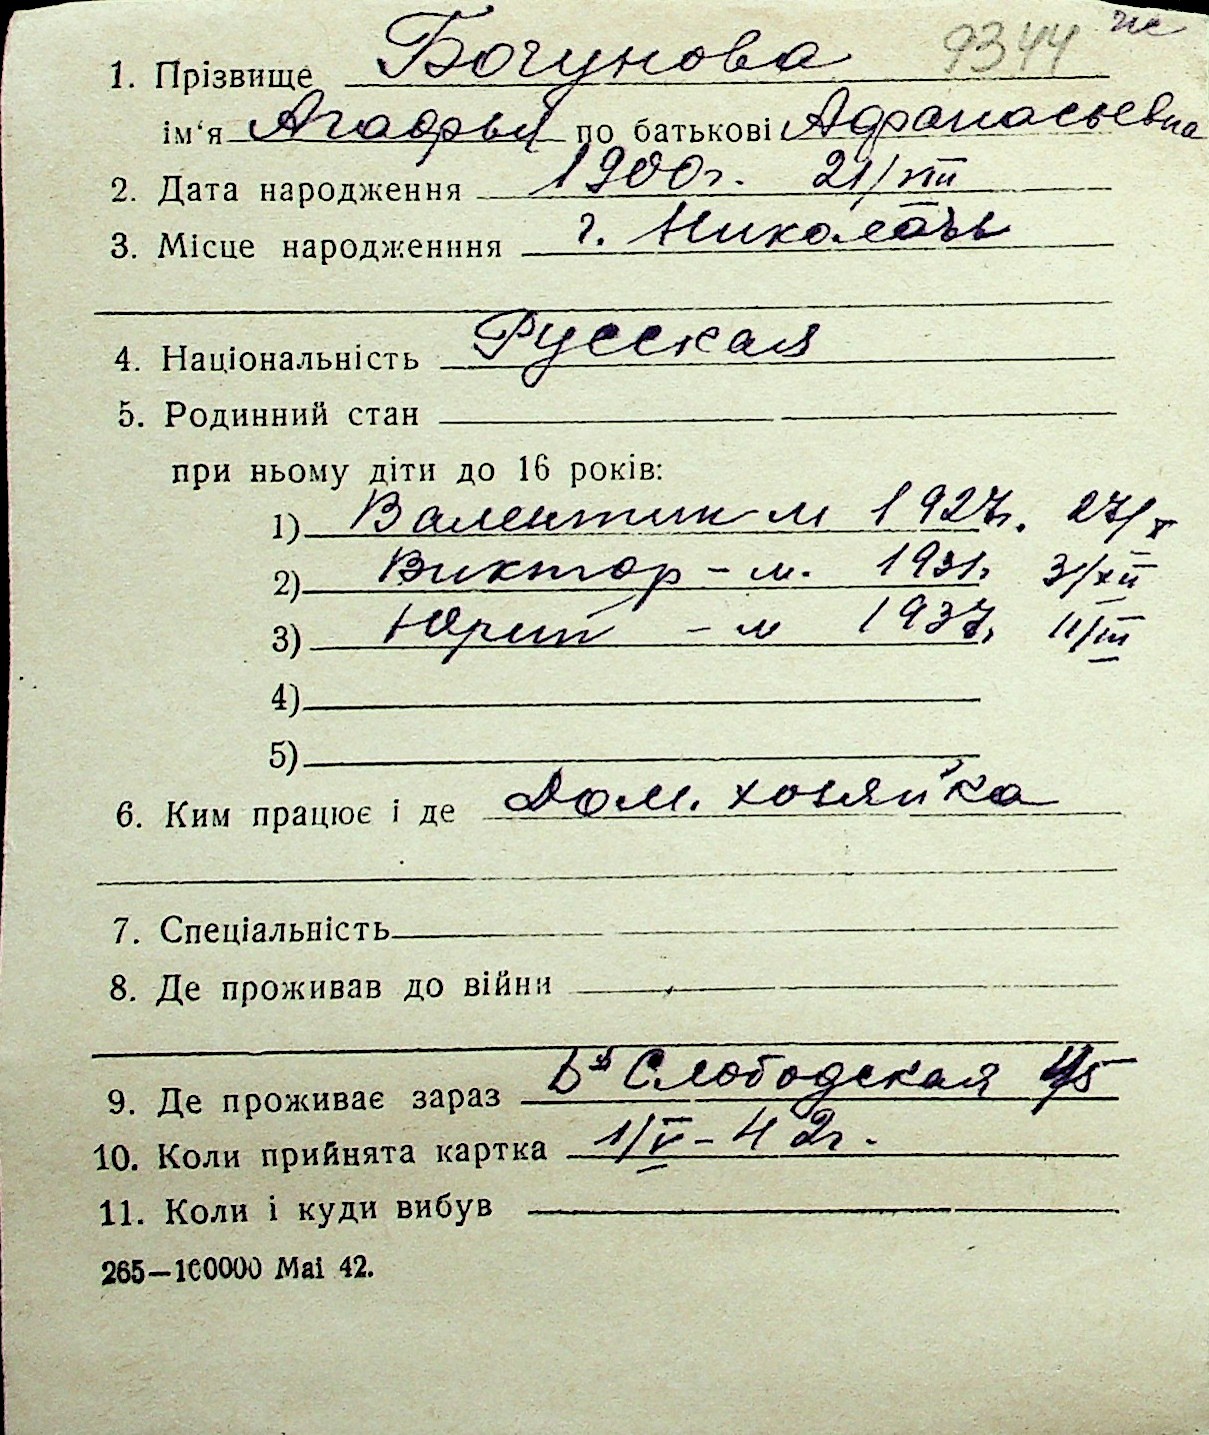 9344
1. Прізвище Богунова
ім‘я Агафья по батькові Афанасьевна
2. Дата народження 1900г. 21/VIII
3. Місце народженння г. Николаев
4. Національність Русская
5. Родинний стан
при ньому діти до 16 років:
1) Валентин м 1927г. 27/X
2) Виктор – м. 1931г. 3/XII
3) Юрий – м 1937г. 11/III
4)
5)
6. Ким працює і де Дом. хозяйка
7. Спеціальність
8. Де проживав до війни
9. Де проживає зараз Слободская
10. Коли прийнята картка 1/V – 42г.
11. Коли і куди вибув
265—100000 Mai 42.